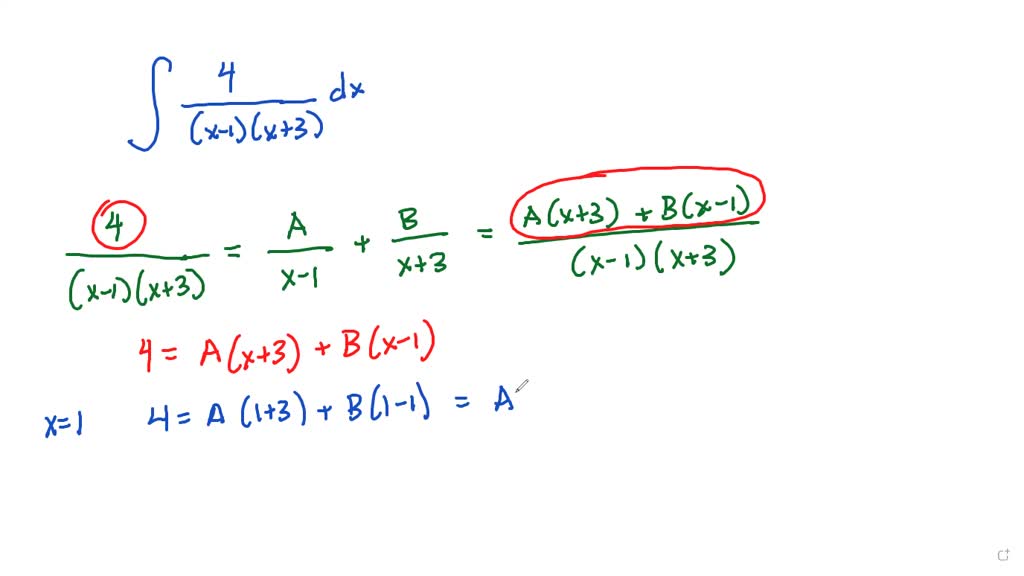 ∫ 4/((x-1)(x+3)) dx
4/((x-1)(x+3)) = A/(x-1) + B/(x+3) = (A(x+3) + B(x-1))/((x-1)(x+3))
4 = A(x+3) + B(x-1)
x=1 4 = A(1+3) + B(1-1) = A